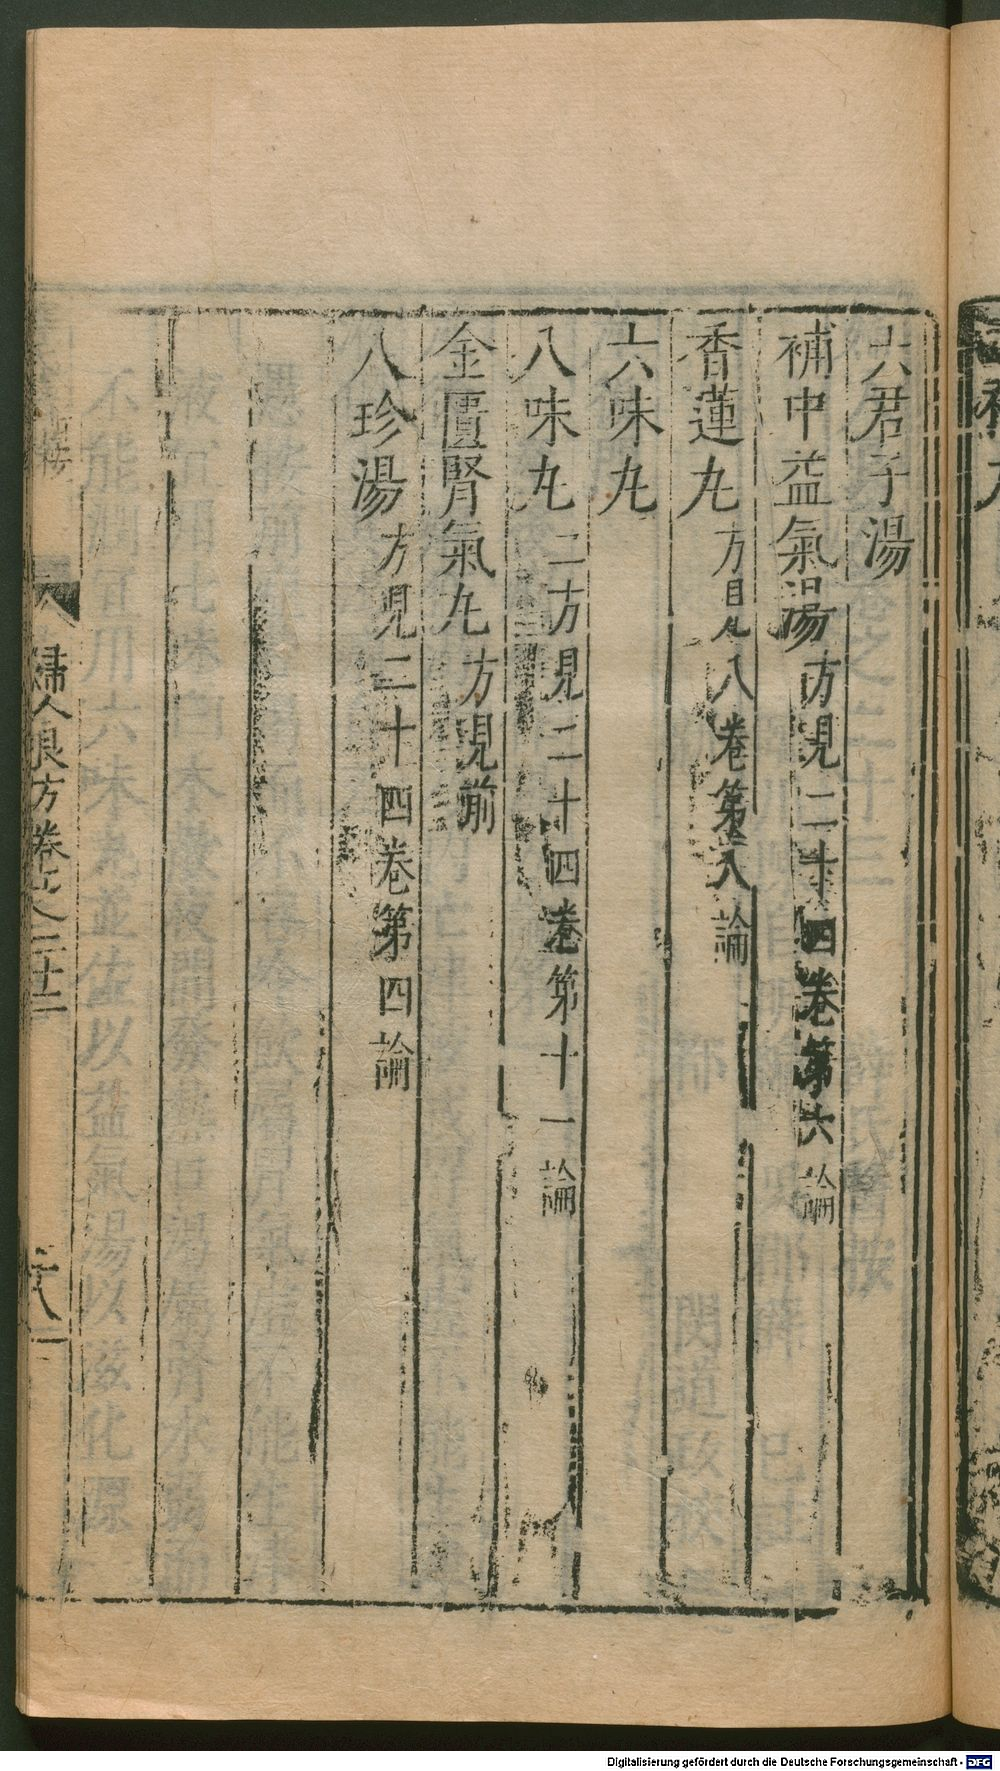 六君子湯
補中益氣湯 方見二十四卷第六論
香蓮丸 方見八卷第八論
六味丸
八味丸 二方見二十四卷第十一論
金匱腎氣丸 方見前
八珍湯 方見二十四卷第四論
婦人良方卷之二十二
Digitalisierung gefördert durch die Deutsche Forschungsgemeinschaft - DFG